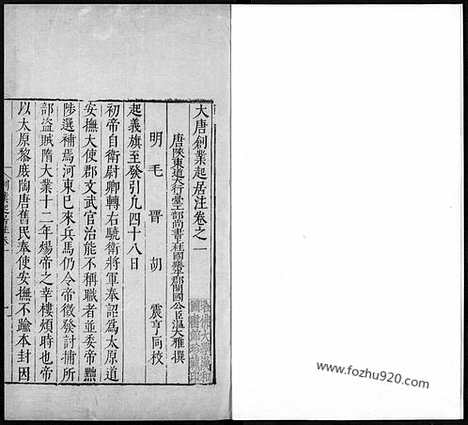 大唐創業起居注卷之一
唐陝東道大行臺工部尚書上柱國樂平郡開國公臣溫大雅撰
明毛晉胡震亨同校
起義旗至發引凡四十八日
初帝自衛尉卿轉右驍衛將軍奉詔爲太原道
安撫大使郡文武官治能不稱職者並委帝黜
陟選補焉河東已來兵馬仍令帝徵發討捕所
部盜賊隋大業十二年煬帝之幸樓煩時也帝
以太原黎庶陶唐舊民奉使安撫不踰本封因
www.fozhu920.com